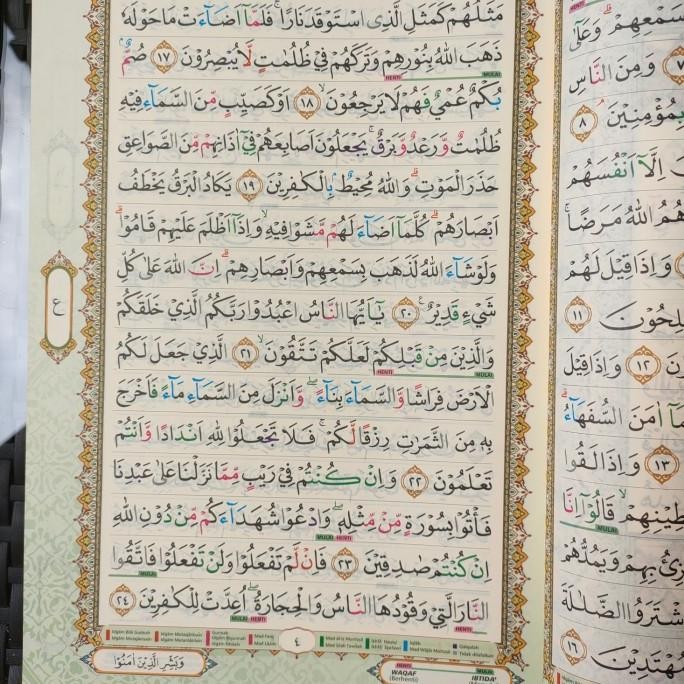 مَثَلُهُمْ كَمَثَلِ الَّذِى اسْتَوْقَدَ نَارًاۚ فَلَمَّآ اَضَاۤءَتْ مَاحَوْلَهٗ
ذَهَبَ اللّٰهُ بِنُوْرِهِمْ وَتَرَكَهُمْ فِيْ ظُلُمٰتٍ لَّا يُبْصِرُوْنَ ١٧ صُمٌّۢ
بُكْمٌ عُمْيٌ فَهُمْ لَا يَرْجِعُوْنَۙ ١٨ اَوْ كَصَيِّبٍ مِّنَ السَّمَاۤءِ فِيْهِ
ظُلُمٰتٌ وَّرَعْدٌ وَّبَرْقٌۚ يَجْعَلُوْنَ اَصَابِعَهُمْ فِيْٓ اٰذَانِهِمْ مِّنَ الصَّوَاعِقِ
حَذَرَ الْمَوْتِۗ وَاللّٰهُ مُحِيْطٌۢ بِالْكٰفِرِيْنَ ١٩ يَكَادُ الْبَرْقُ يَخْطَفُ
اَبْصَارَهُمْۗ كُلَّمَآ اَضَاۤءَ لَهُمْ مَّشَوْا فِيْهِۙ وَاِذَآ اَظْلَمَ عَلَيْهِمْ قَامُوْاۗ
وَلَوْ شَاۤءَ اللّٰهُ لَذَهَبَ بِسَمْعِهِمْ وَاَبْصَارِهِمْۗ اِنَّ اللّٰهَ عَلٰى كُلِّ
شَيْءٍ قَدِيْرٌ ࣖ ٢٠ يٰٓاَيُّهَا النَّاسُ اعْبُدُوْا رَبَّكُمُ الَّذِيْ خَلَقَكُمْ
وَالَّذِيْنَ مِنْ قَبْلِكُمْ لَعَلَّكُمْ تَتَّقُوْنَۙ ٢١ الَّذِيْ جَعَلَ لَكُمُ
الْاَرْضَ فِرَاشًا وَّالسَّمَاۤءَ بِنَاۤءًۖ وَّاَنْزَلَ مِنَ السَّمَاۤءِ مَاۤءً فَاَخْرَجَ
بِهٖ مِنَ الثَّمَرٰتِ رِزْقًا لَّكُمْۚ فَلَا تَجْعَلُوْا لِلّٰهِ اَنْدَادًا وَّاَنْتُمْ
تَعْلَمُوْنَ ٢٢ وَاِنْ كُنْتُمْ فِيْ رَيْبٍ مِّمَّا نَزَّلْنَا عَلٰى عَبْدِنَا
فَأْتُوْا بِسُوْرَةٍ مِّنْ مِّثْلِهٖۖ وَادْعُوْا شُهَدَاۤءَكُمْ مِّنْ دُوْنِ اللّٰهِ
اِنْ كُنْتُمْ صٰدِقِيْنَ ٢٣ فَاِنْ لَّمْ تَفْعَلُوْا وَلَنْ تَفْعَلُوْا فَاتَّقُوا
النَّارَ الَّتِيْ وَقُوْدُهَا النَّاسُ وَالْحِجَارَةُۖ اُعِدَّتْ لِلْكٰفِرِيْنَ ٢٤
ع
٤
وَبَشِّرِ الَّذِيْنَ اٰمَنُوْا
WAQAF
(Berhenti)
IBTIDA'
سَمْعِهِمْۗ وَعَلٰٓى
٧ وَمِنَ النَّاسِ
بِمُؤْمِنِيْنَۘ ٨
اِلَّآ اَنْفُسَهُمْ
هُمُ اللّٰهُ مَرَضًاۚ
وَاِذَا قِيْلَ لَهُمْ
١١
١٢ وَاِذَا قِيْلَ
اٰمَنَ السُّفَهَاۤءُۗ
١٣ وَاِذَا لَقُوا
قَالُوْٓا اِنَّا
بِهِمْ وَيَمُدُّهُمْ
اشْتَرَوُا الضَّلٰلَةَ
مُهْتَدِيْنَ ١٦